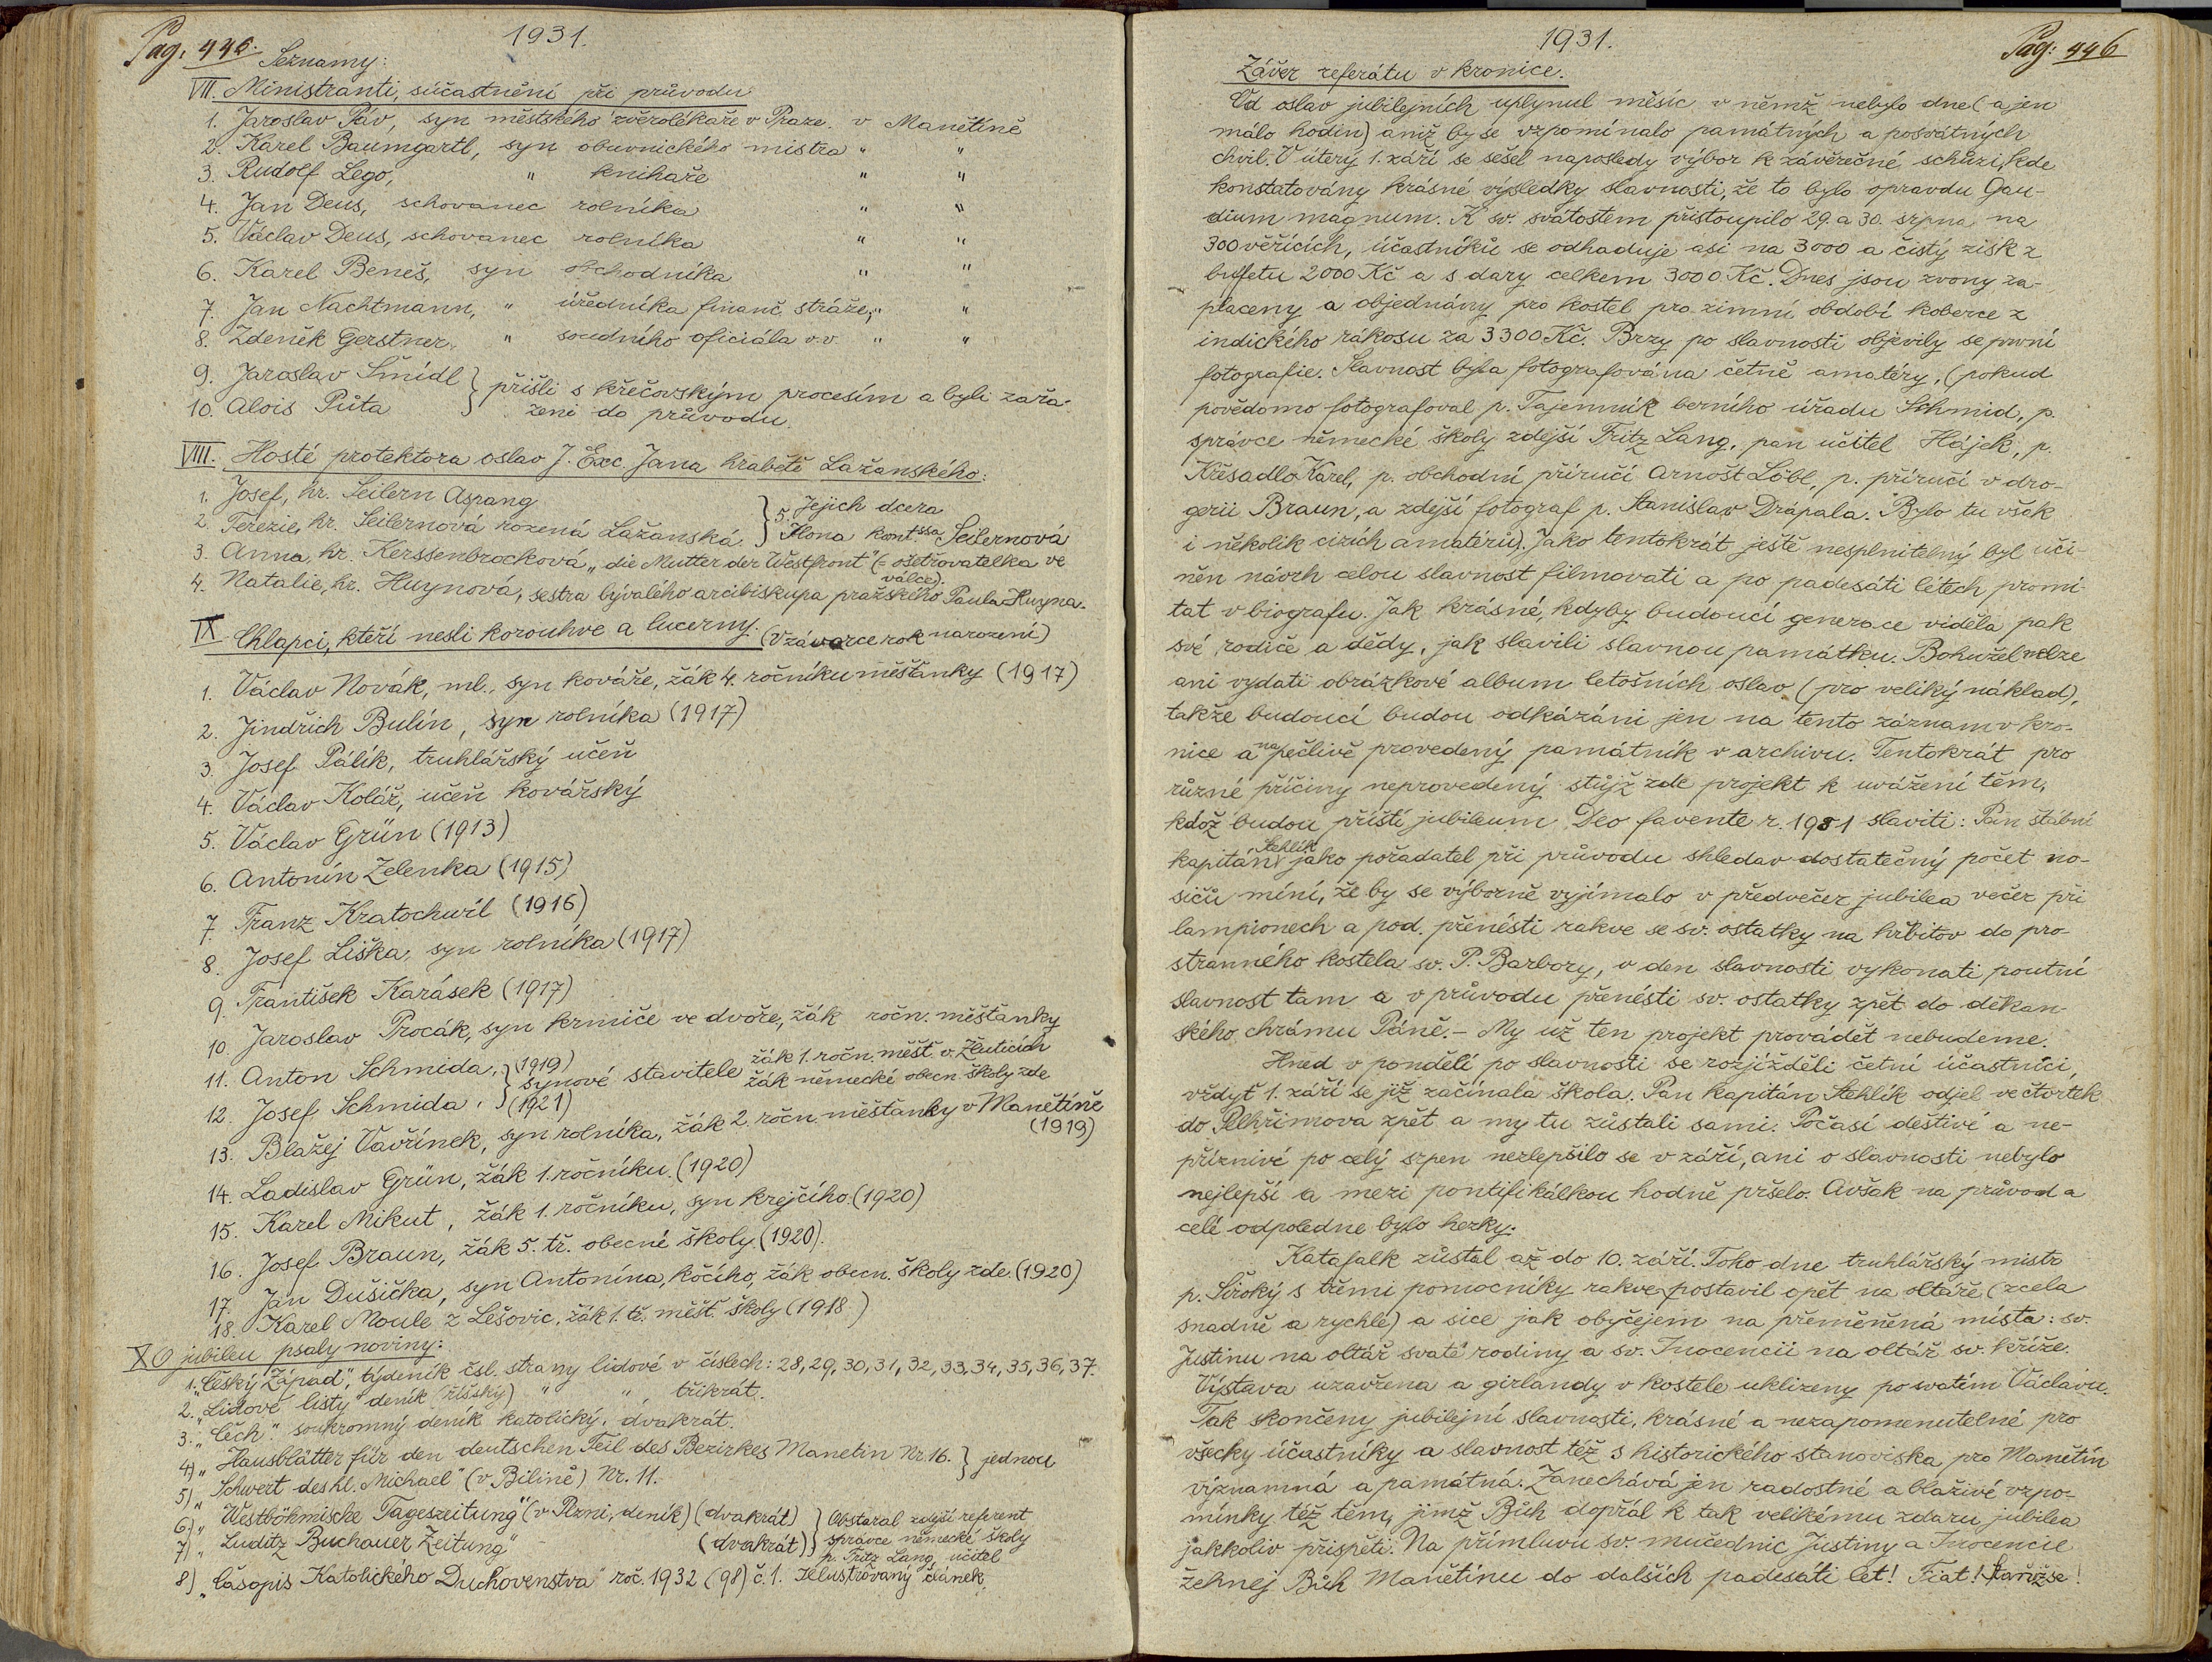 Pag. 445.
1931.
Seznamy:
VII. Ministranti, súčastnění při průvodu
1. Jaroslav Páv, syn městského zvěrolékaře v Praze. v Manětíně
2. Karel Baumgartl, syn obuvnického mistra " "
3. Rudolf Lego, " knihaře " "
4. Jan Deus, schovanec rolníka " "
5. Václav Deus, schovanec rolníka " "
6. Karel Beneš, syn obchodníka " "
7. Jan Nachtmann, " úředníka finanč. stráže, " "
8. Zdeněk Gerstner, " soudního oficiála v.v. " "
9. Jaroslav Šmídl } přišli s křečovským procesím a byli zařa-
10. Alois Půta } ženi do průvodu.
VIII. Hosté protektora oslav J. Exc. Jana hraběte Lažanského:
1. Josef, hr. Seilern Aspang } 5. Jejich dcera
2. Terezie, hr. Seilernová rozená Lažanská. } Ilona kontssa Seilernová
3. Anna, hr. Kerssenbrocková „die Mutter der Westfront" (= ošetřovatelka ve
válce).
4. Natalie, hr. Huynová, sestra bývalého arcibiskupa pražského Paula Huyna.
IX Chlapci, kteří nesli korouhve a lucerny. (V závorce rok narození)
1. Václav Novák, ml., syn kováře, žák 4. ročníku měšťanky (1917)
2. Jindřich Bulín, syn rolníka (1917)
3. Josef Pálík, truhlářský učeň
4. Václav Kolář, učeň kovářský
5. Václav Grün (1913)
6. Antonín Zelenka (1915)
7. Franz Kratochwil (1916)
8. Josef Liška, syn rolníka (1917)
9. František Karásek (1917)
10. Jaroslav Procák, syn krmiče ve dvoře, žák ročn. měšťanky
11. Anton Schmida, (1919) } synové stavitele žák 1. ročn. měšť. v Žluticích
12. Josef Schmida, (1921) } žák německé obecn. školy zde
13. Blažej Vavřínek, syn rolníka, žák 2. ročn. měšťanky v Manětíně
(1919)
14. Ladislav Grün, žák 1. ročníku (1920)
15. Karel Mikut, žák 1. ročníku, syn krejčího. (1920)
16. Josef Braun, žák 5. tř. obecné školy (1920).
17. Jan Dušička, syn Antonína, kočího, žák obecn. školy zde. (1920)
18. Karel Moule z Lešovic, žák 1. tř. měšť. školy (1918.)
X O jubileu psaly noviny:
1. „Český Západ", týdeník čsl. strany lidové v číslech: 28, 29, 30, 31, 32, 33, 34, 35, 36, 37.
2. „Lidové listy" deník (říšský) " " třikrát.
3. „Čech". soukromný deník katolický, dvakrát.
4) „Hausblätter für den deutschen Teil des Bezirkes Manetin Nr. 16. } jednou
5) „Schwert des hl. Michael" (v Bílině) Nr. 11.
6) „Westböhmische Tageszeitung" (v Plzni, deník) (dvakrát) } Obstaral zdejší referent
7) „Luditz Buchauer Zeitung" (dvakrát) } správce německé školy
p. Fritz Lang, učitel
8) „Časopis Katolického Duchovenstva" roč. 1932 (98) č. 1. Ilustrovaný článek.
1931.
Pag: 446
Závěr referátu v kronice.
Od oslav jubilejních uplynul měsíc v němž nebylo dne (a jen
málo hodin) aniž by se vzpomínalo památných a posvátných
chvil. V úterý 1. září se sešel naposledy výbor k závěrečné schůzi, kde
konstatovány krásné výsledky slavnosti, že to bylo opravdu Gau-
dium magnum. K sv. svátostem přistoupilo 29. a 30. srpna na
300 věřících, účastníků se odhaduje asi na 3000 a čistý zisk z
buffetu 2000 Kč a s dary celkem 3000 Kč. Dnes jsou zvony za-
placeny a objednány pro kostel pro zimní období koberce z
indického rákosu za 3300 Kč. Brzy po slavnosti objevily se první
fotografie. Slavnost byla fotografována četně amatéry, (pokud
povědomo fotografoval p. Tajemník berního úřadu Schmid, p.
správce německé školy zdejší Fritz Lang, pan učitel Hájek, p.
Křesadlo Karel, p. obchodní příručí Arnošt Löbl, p. příručí v dro-
gerii Braun, a zdejší fotograf p. Stanislav Drápala. Bylo tu však
i několik cizích amatérů). Jako tentokrát ještě nesplnitelný byl uči-
něn návrh celou slavnost filmovati a po padesáti létech promí-
tat v biografu. Jak krásné, kdyby budoucí generace viděla pak
své rodiče a dědy, jak slavili slavnou památku. Bohužel nelze
ani vydati obrázkové album letošních oslav (pro veliký náklad),
takže budoucí budou odkázáni jen na tento záznam v kro-
nice a na pečlivě provedený památník v archivu. Tentokrát pro
různé příčiny neprovedený stůjž zde projekt k uvážení těm,
kdož budou příští jubileum Deo favente r. 1981 slaviti: Pan štábní
kapitán Stehlík jako pořadatel při průvodu shledav dostatečný počet no-
sičů míní, že by se výborně vyjímalo v předvečer jubilea večer při
lampionech a pod. přenésti rakve se sv. ostatky na hřbitov do pro-
stranného kostela sv. P. Barbory, v den slavnosti vykonati poutní
slavnost tam a v průvodu přenésti sv. ostatky zpět do děkan-
ského chrámu Páně. – My už ten projekt provádět nebudeme.
Hned v pondělí po slavnosti se rozjížděli četní účastníci,
vždyť 1. září se již začínala škola. Pan kapitán Stehlík odjel ve čtvrtek
do Pelhřimova zpět a my tu zůstali sami. Počasí deštivé a ne-
příznivé po celý srpen nezlepšilo se v září, ani o slavnosti nebylo
nejlepší a mezi pontifikálkou hodně pršelo. Avšak na průvod a
celé odpoledne bylo hezky.
Katafalk zůstal až do 10. září. Toho dne truhlářský mistr
p. Široký s třemi pomocníky rakve postavil opět na oltáře (zcela
snadně a rychle) a sice jak obyčejem na přeměněná místa: sv.
Justinu na oltář svaté rodiny a sv. Inocencii na oltář sv. kříže.
Výstava uzavřena a girlandy v kostele uklizeny po svatém Václavu.
Tak skončeny jubilejní slavnosti, krásné a nezapomenutelné pro
všecky účastníky a slavnost též s historického stanoviska pro Manětín
významná a památná. Zanechává jen radostné a blaživé vzpo-
mínky též těm, jimž Bůh dopřál k tak velikému zdaru jubilea
jakkoliv přispěti. Na přímluvu sv. mučednic Justiny a Inocencie
žehnej Bůh Manětínu do dalších padesáti let! Fiat! Staniž se!